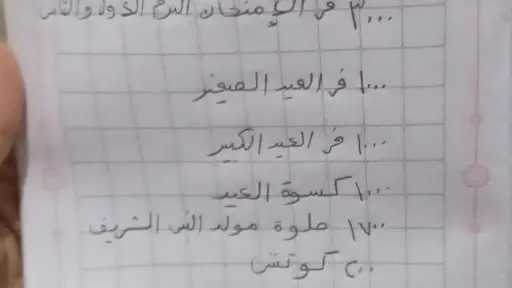 ٣٠٠٠ فى الإمتحان الترم الاول والثانى
١٠٠٠ فى العيد الصغير
١٠٠٠ فى العيد الكبير
١٠٠٠ كسوة العيد
١٧٠٠ حلوة مولد النبى الشريف
٢٠٠ كوتش